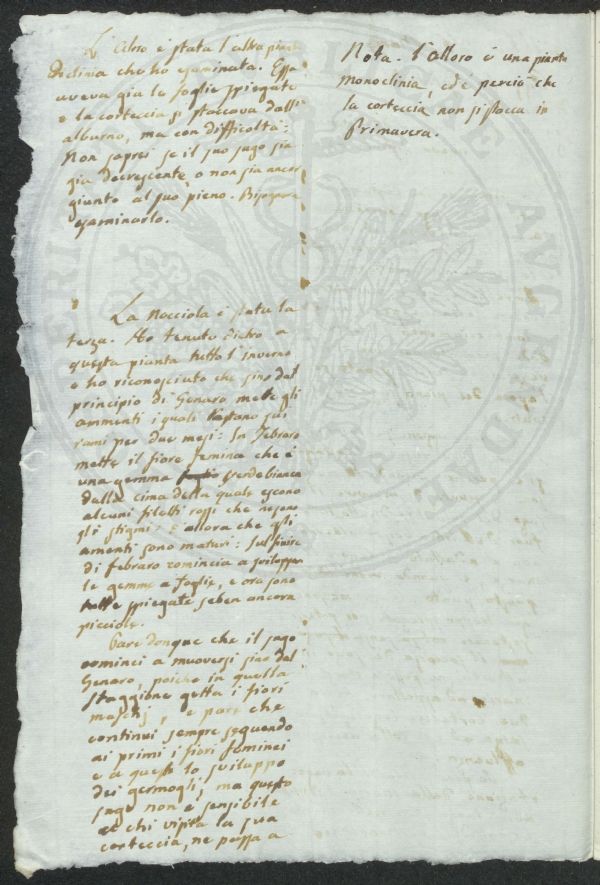 L'Alloro è stata l'altra pianta
diclinia che ho esaminata. Essa
aveva gia le foglie spiegate
e la corteccia si staccava dall'
alburno, ma con difficoltà:
Non saprei se il suo sugo sia
gia decrescente, o non sia ancor
giunto al suo pieno. Bisogna
esaminarlo.
La Nocciola è stata la
terza. Ho tenuto dietro a
questa pianta tutto l'inverno
e ho riconosciuto che sino dal
principio di Genaro mette gli
ammenti i quali restano sui
rami per due mesi: In Febraro
mette il fiore femina che è
una gemma verdebianca
dalla cima della quale escono
alcuni filetti rossi che
gli stigmi: è allora che gli
amenti sono maturi: Sul finire
di febraro comincia a sviluppar
le gemme a foglie, e ora sono
tutte spiegate seben ancora
picciole.
Pare donque che il sugo
cominci a muoversi sino dal
Genaro, poiche in quella
staggione getta i fiori
maschj, e pare che
continui sempre seguendo
ai primi i fiori feminei
e a questi lo sviluppo
dei germogli, ma questo
sugo non è sensibile
a chi visita la sua
corteccia, ne passa a
Nota. l'alloro è una pianta
monoclinia, ed è perciò che
la corteccia non si stacca in
Primavera.